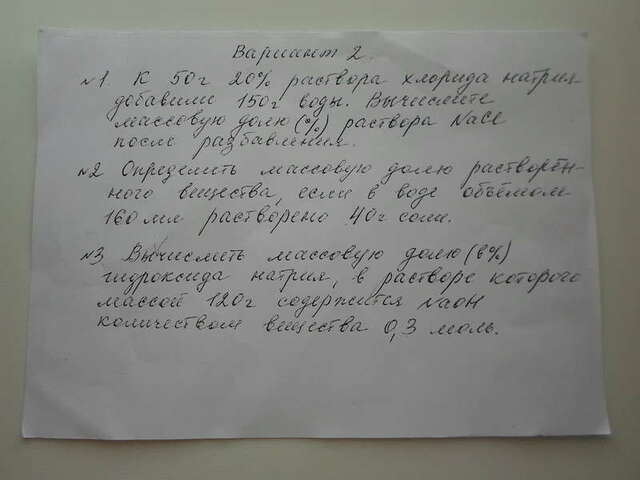 Вариант 2.
№1. К 50г 20% раствора хлорида натрия
добавили 150г воды. Вычислите
массовую долю (%) раствора NaCl
после разбавления.
№2 Определить массовую долю растворён-
ного вещества, если в воде объёмом
160 мл растворено 40г соли.
№3 Вычислить массовую долю (в%)
гидроксида натрия, в растворе которого
массой 120г содержится NaOH
количеством вещества 0,3 моль.